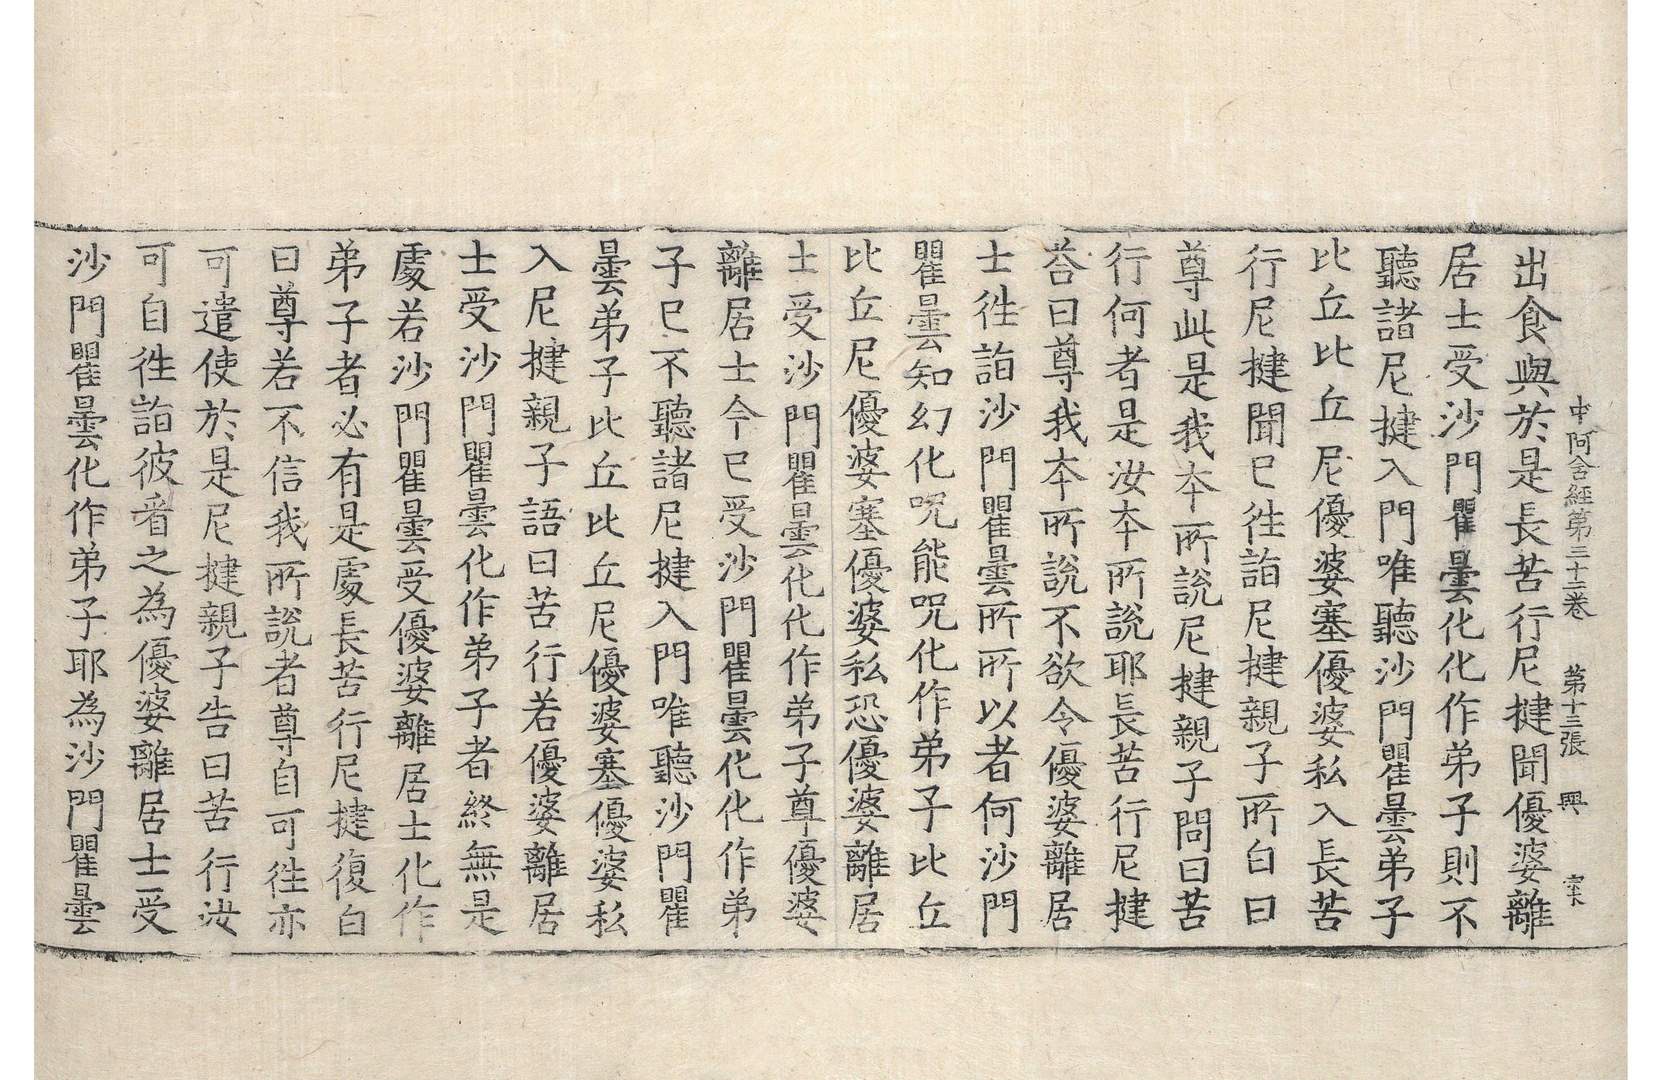 中阿含經第三十二卷　第十三張　興　宋
出食與於是長苦行尼揵聞優婆離
居士受沙門瞿曇化化作弟子則不
聽諸尼揵入門唯聽沙門瞿曇弟子
比丘比丘尼優婆塞優婆私入長苦
行尼揵聞已徃詣尼揵親子所白曰
尊此是我本所說尼揵親子問曰苦
行何者是汝本所說耶長苦行尼揵
荅曰尊我本所說不欲令優婆離居
士徃詣沙門瞿曇所所以者何沙門
瞿曇知幻化呪能呪化作弟子比丘
比丘尼優婆塞優婆私恐優婆離居
士受沙門瞿曇化化作弟子尊優婆
離居士今已受沙門瞿曇化化作弟
子已不聽諸尼揵入門唯聽沙門瞿
曇弟子比丘比丘尼優婆塞優婆私
入尼揵親子語曰苦行若優婆離居
士受沙門瞿曇化作弟子者終無是
處若沙門瞿曇受優婆離居士化作
弟子者必有是處長苦行尼揵復白
曰尊若不信我所說者尊自可徃亦
可遣使於是尼揵親子告曰苦行汝
可自徃詣彼看之為優婆離居士受
沙門瞿曇化作弟子耶為沙門瞿曇